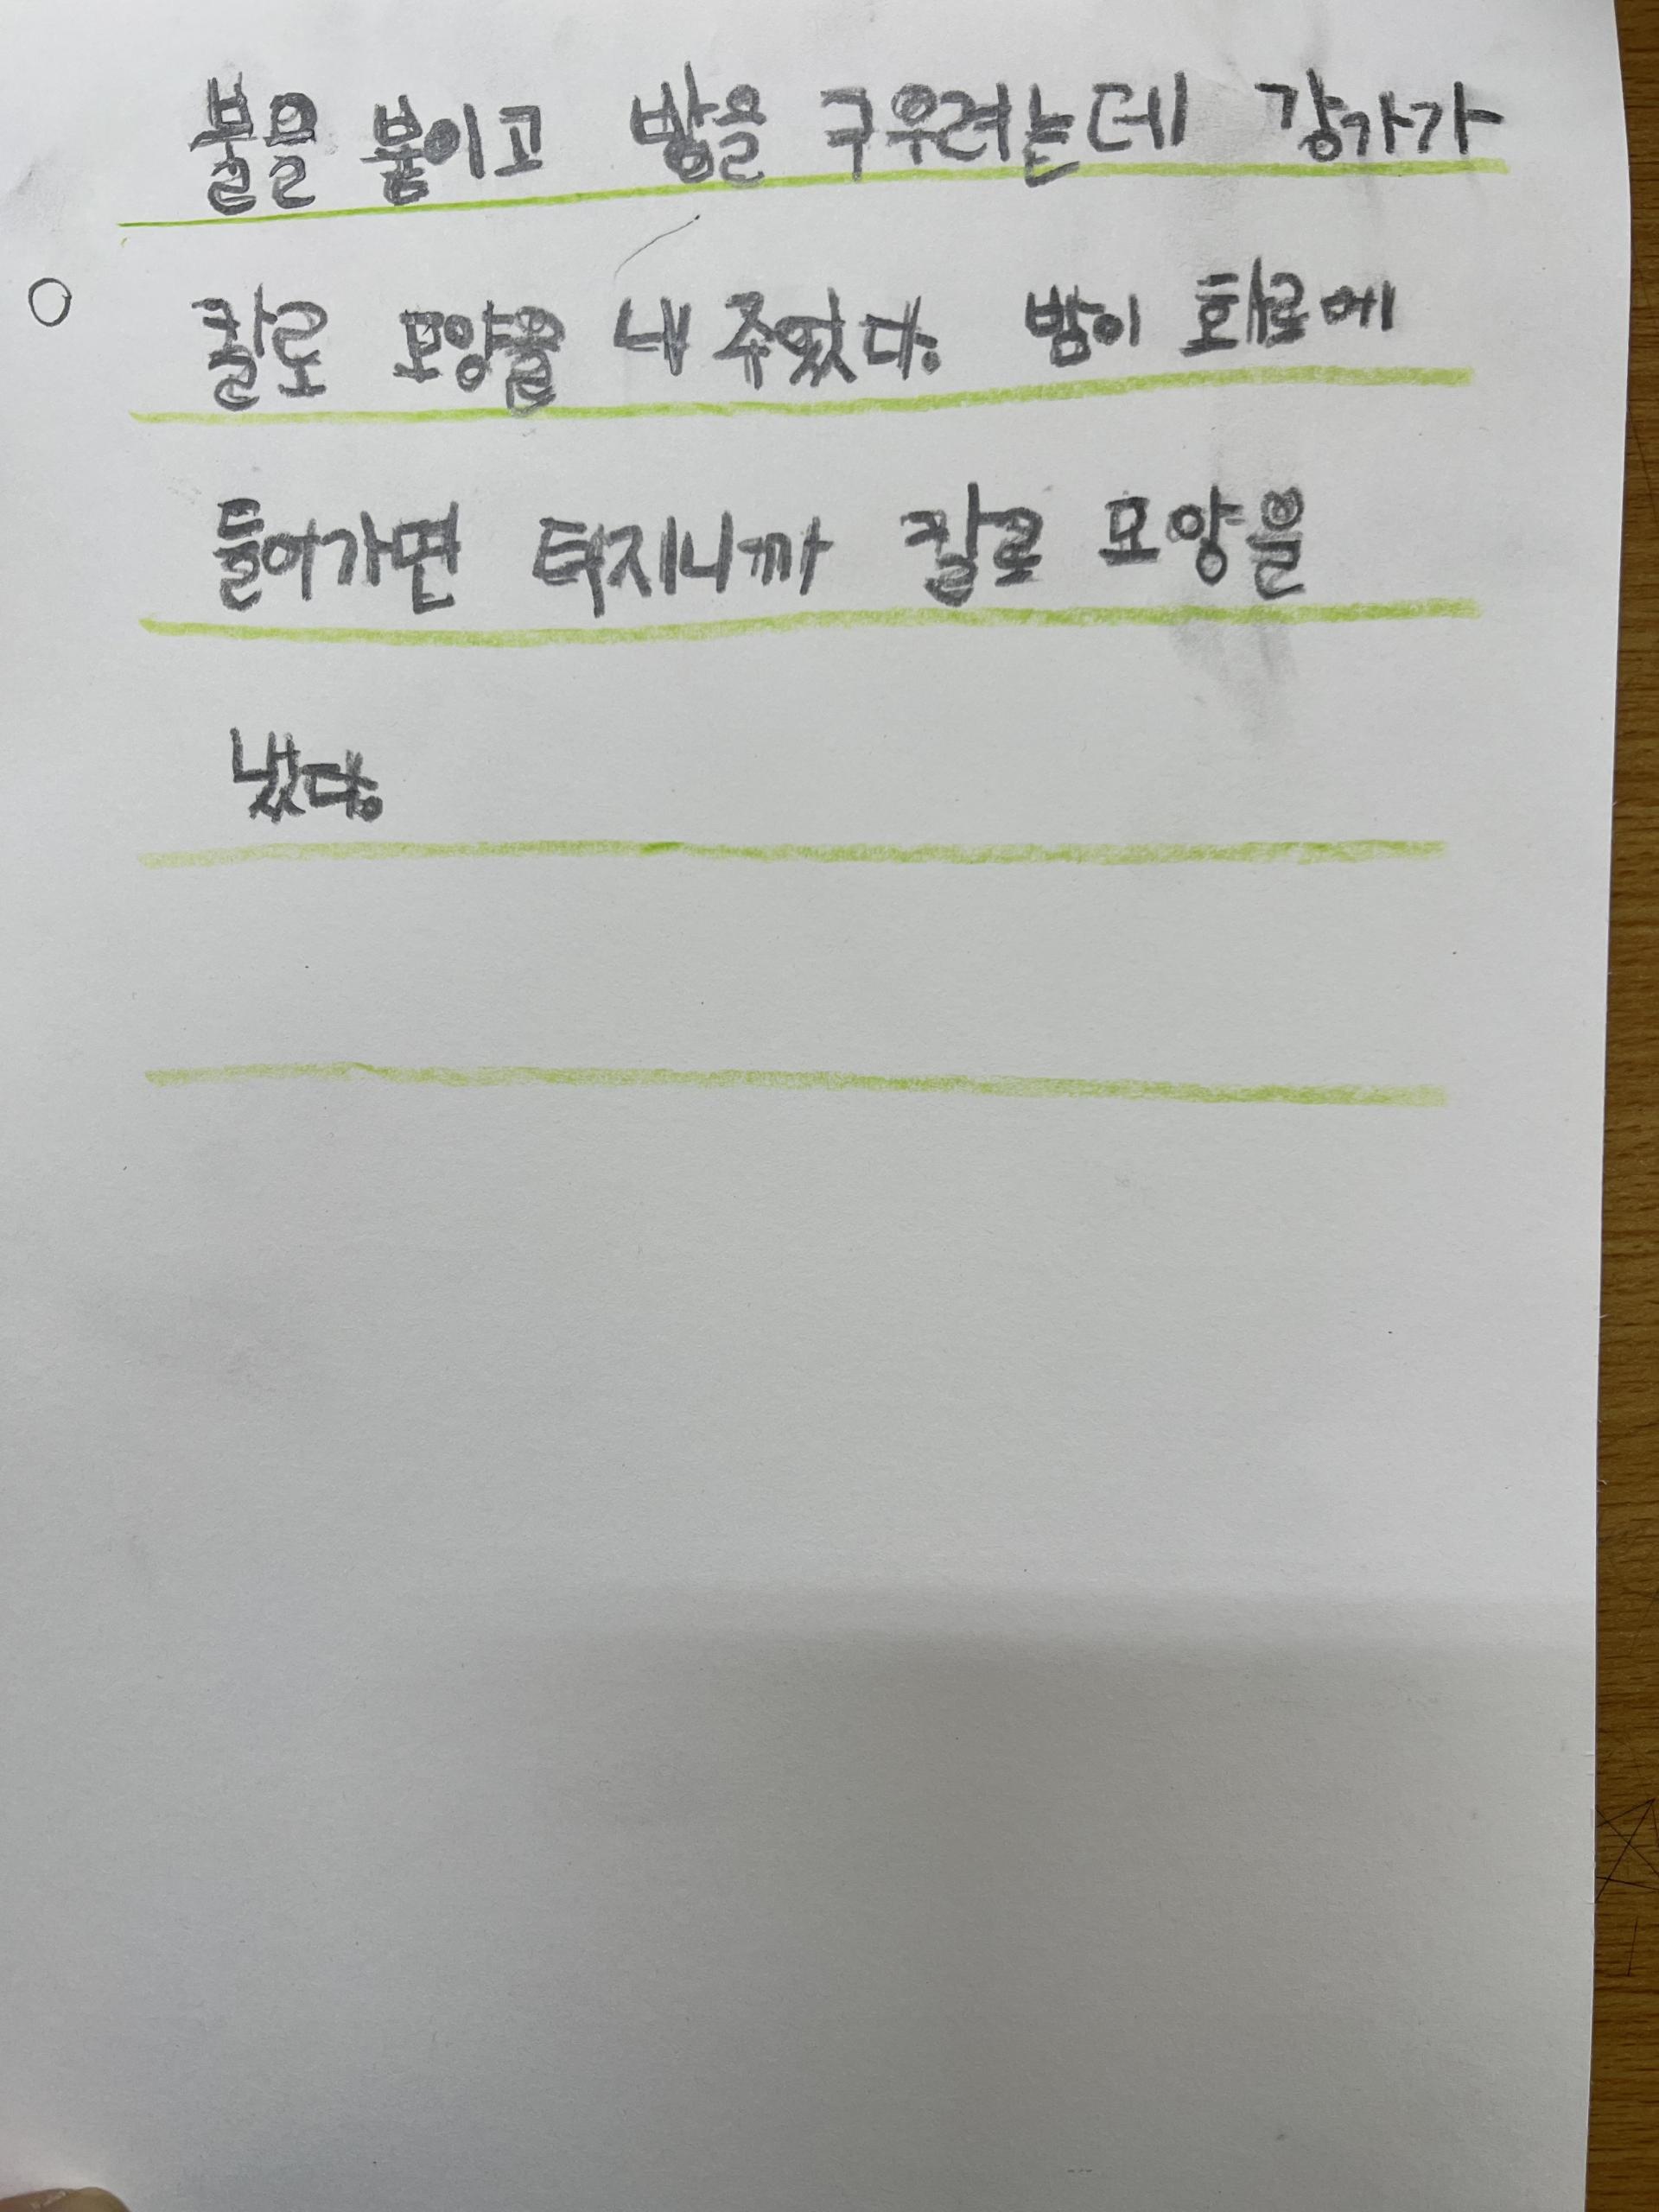 불을 붙이고 밤을 구우려는데 강가가
칼로 모양을 내 주었다. 밤이 화로에
들어가면 터지니까 칼로 모양을
냈다.